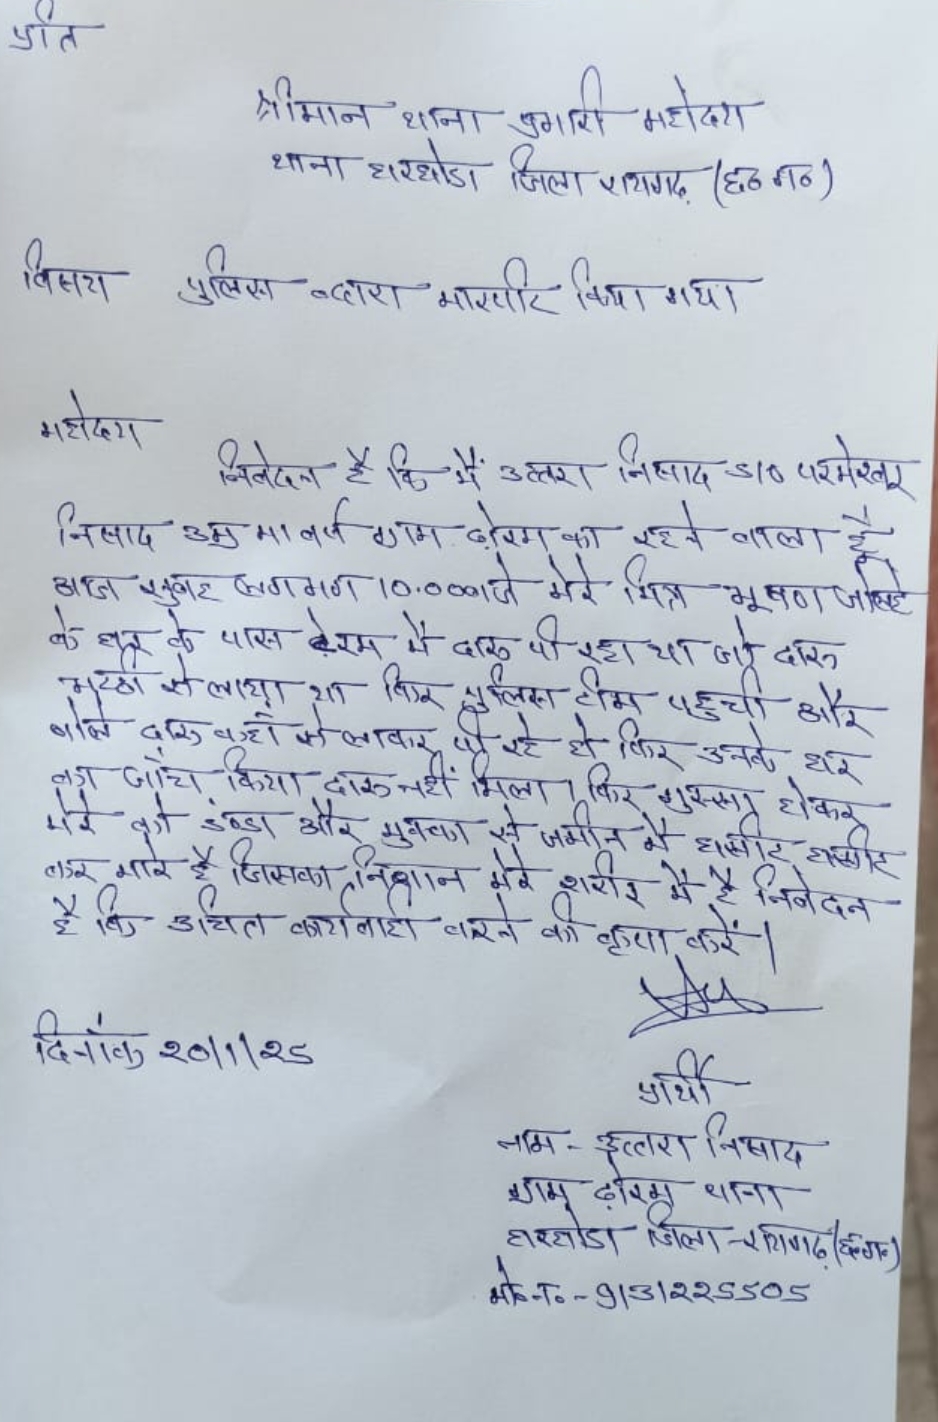 प्रति
श्रीमान थाना प्रभारी महोदय
थाना घरघोडा जिला रायगढ़ (छ०ग०)
विसय पुलिस व्दारा मारपीट किया गया
महोदय
निवेदन है कि मैं उत्तरा निसाद S/o परमेश्वर
निसाद उम्र ग्राम ढ़ोरम का रहने वाला हूँ
आज सुबह लगभग 10.00बजे मेरे मित्र भूषण
के घर के पास ढोरम में दारू पी रहा था जो दारू
भट्ठी से लाया था फिर पुलिस टीम पहुची और
बोले दारू कहाँ से लाकर पी रहे हो फिर उनके घर
का जाँच किया दारू नहीं मिला । फिर गुस्सा होकर
मेरे को डंण्डा और मुक्का से जमीन में घसीट घसीट
कर मारे है जिसका निशान मेरे शरीर में है निवेदन
है कि उचित कार्यवाही करने की कृपा करें।
दिनाँक 20/1/25
प्रार्थी
नाम - उत्तरा निषाद
ग्राम ढ़ोरम थाना
घरघोडा जिला - रायगढ़ (छ०ग०)
मो०न० - 9131225505